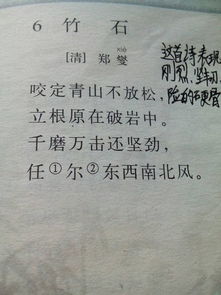 6 竹 石
[清] 郑燮
xiè
咬定青山不放松,
立根原在破岩中。
千磨万击还坚劲,
任①尔②东西南北风。
这首诗表现
刚烈、坚韧